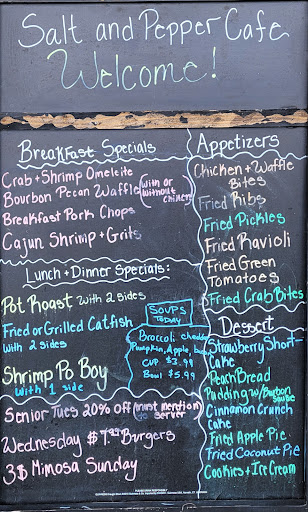 Salt and Pepper Cafe
Welcome!
Breakfast Specials
Crab + Shrimp Omeleite
Bourbon Pecan Waffle with or without chicken
Breakfast Pork Chops
Cajun Shrimp + Grits
Lunch + Dinner Specials:
Pot Roast with 2 sides
Fried or Grilled Catfish
with 2 sides
Shrimp Po Boy
with 1 side
SOUPS
TODAY
Broccoli cheddar
Pumpkin, Apple,
CUP $3.99
Bowl $5.99
Senior Tues 20% off must mention to server
Wednesday $7.99 Burgers
3$ Mimosa Sunday
Appetizers
Chicken + Waffle
Bites
Fried Ribs
Fried Pickles
Fried Ravioli
Fried Green
Tomatoes
Fried Crab Bites
Dessert
Strawberry Short-
Cake
Peach Bread
Pudding w/ Burbon sauce
Cinnamon Crunch
Cake
Fried Apple Pie
Fried Coconut Pie
Cookies + Ice Cream